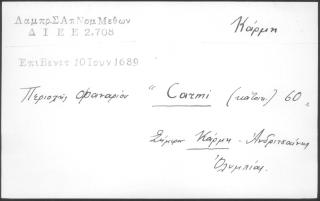 Λαμπρ.ΣΑπ Νομ Μεθων
Κάρμη
Δ Ι Ε Ε 2.708
Επι Βενετ 10 Ιουν 1689
Περιοχής Φαναρίου "Carmi (κάτοικ.) 60"
Σήμερον Κάρμη - Ανδριτσαίνης
Ολυμπίας.